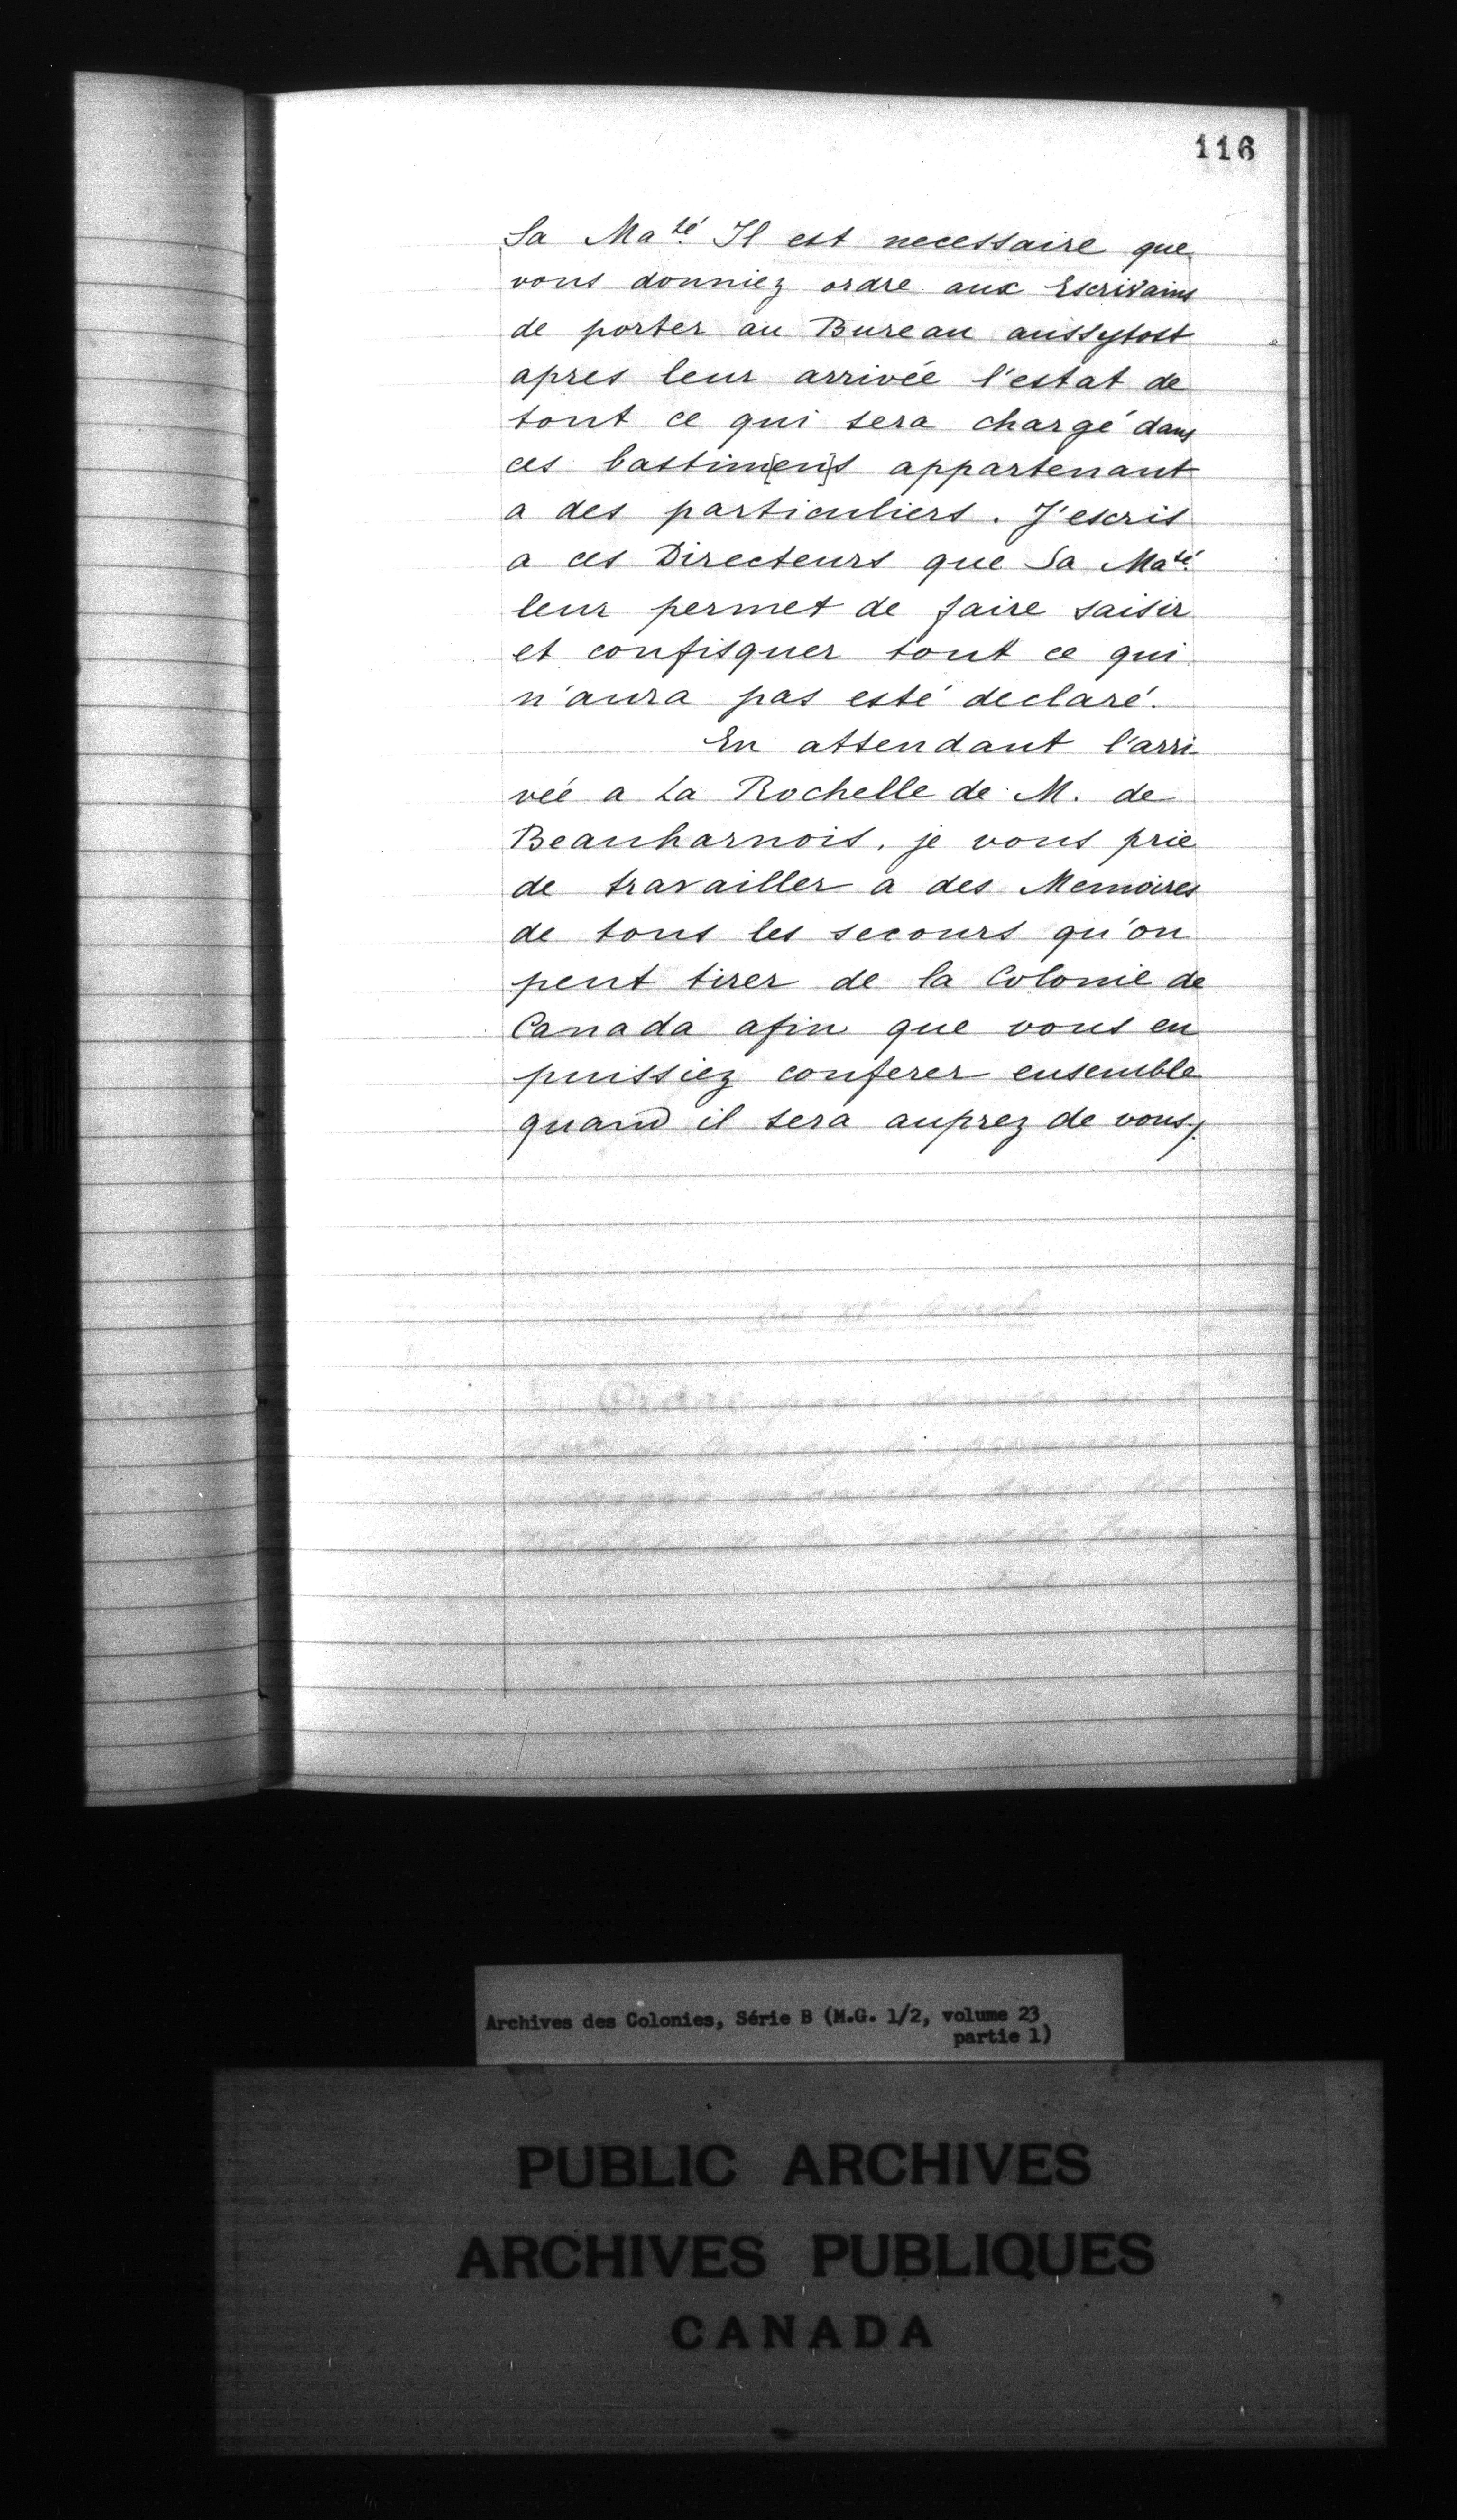 116
Sa Maté. Il est necessaire que
vous donniez ordre aux Escrivains
de porter au Bureau aussytost
apres leur arrivée l'estat de
tout ce qui sera chargé dans
ces bastim[en]s appartenant
a des particuliers. J'escris
a ces Directeurs que Sa Maté.
leur permet de faire saisir
et confisquer tout ce qui
n'aura pas esté declaré.
En attendant l'arri-
vée a La Rochelle de M. de
Beauharnois, je vous prie
de travailler a des Memoires
de tous les secours qu'on
peut tirer de la Colonie de
Canada afin que vous en
puissiez conferer ensemble
quand il sera auprez de vous./.
Archives des Colonies, Série B (M.G. 1/2, volume 23
partie 1)
PUBLIC ARCHIVES
ARCHIVES PUBLIQUES
CANADA